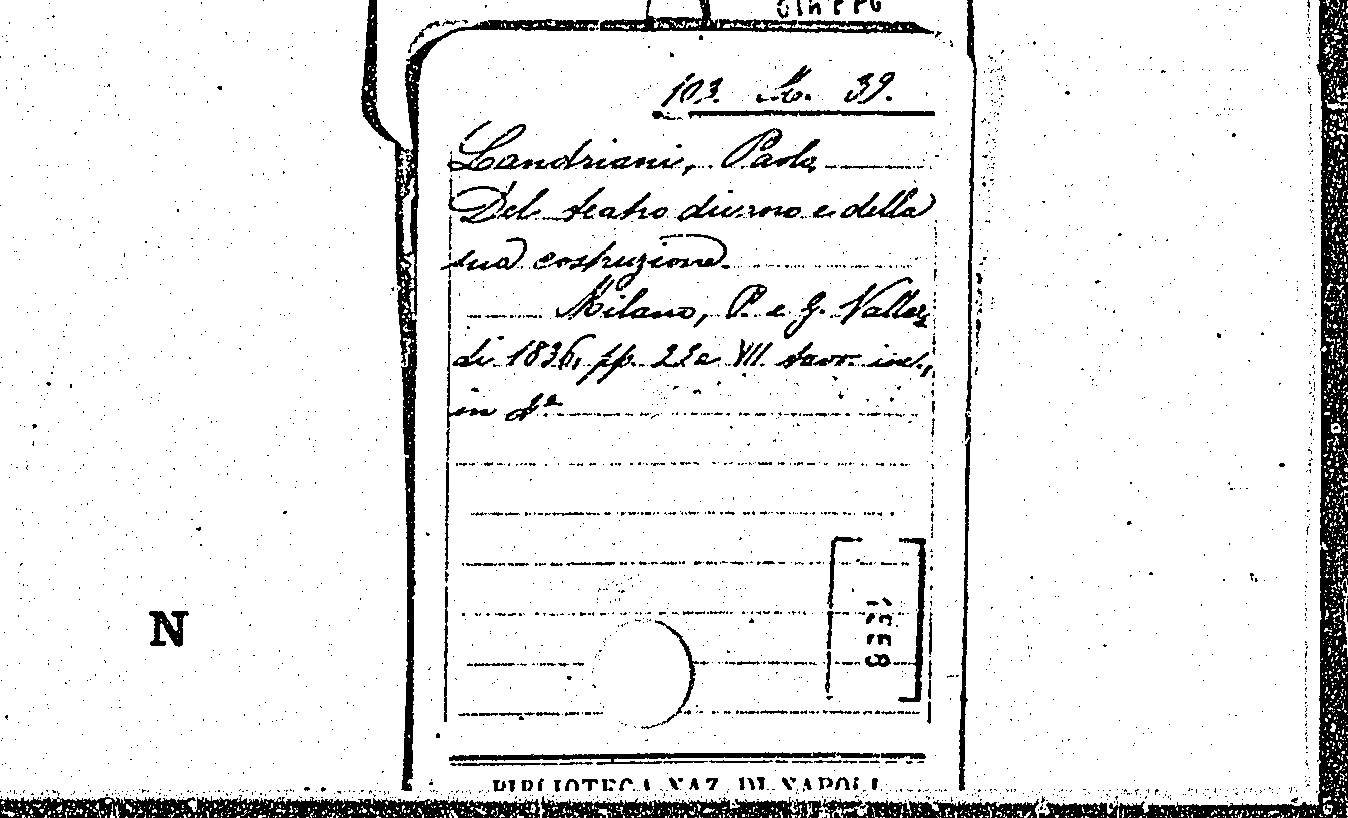 103. M. 39.
Landriani, Paolo
Del teatro diurno e della
sua costruzione.
Milano, P. e G. Vallar
di 1836, pp. 22 e VII tavv. inc.,
in
N
BIBLIOTECA NAZ. DI NAPOLI